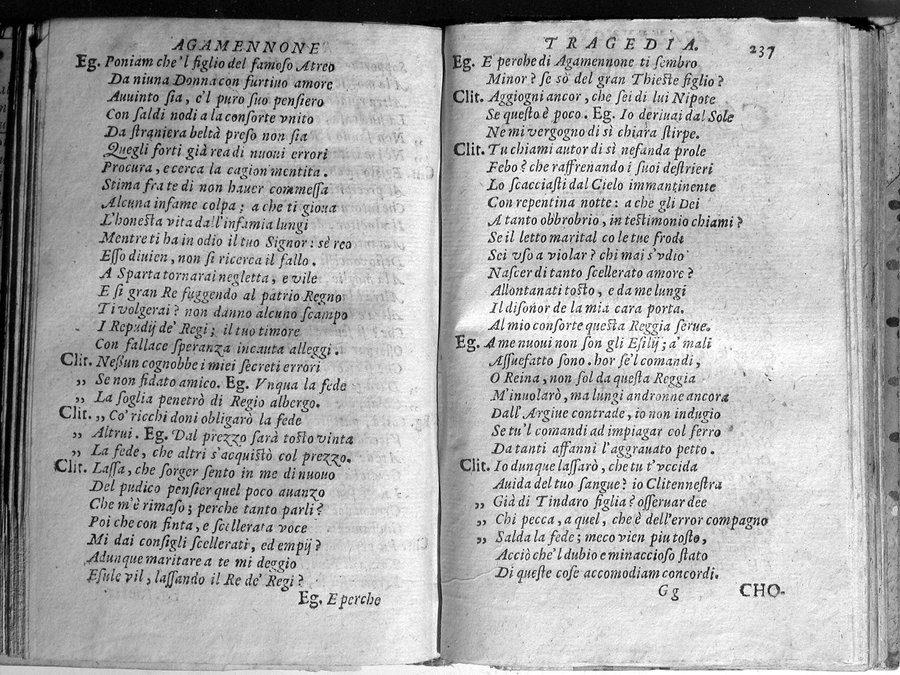 AGAMENNONE
Eg. Poniam che'l figlio del famoso Atreo
Da niuna Donna con furtiuo amore
Auuinto sia, e'l puro suo pensiero
Con saldi nodi a la consorte vnito
Da straniera beltà preso non sia
Quegli forti già rea di nuoui errori
Procura, e cerca la cagion mentita.
Stima fra te di non hauer commessa
Alcuna infame colpa; a che ti gioua
L'honesta vita dall'infamia lungi
Mentre ti ha in odio il tuo Signor: sè reo
Esso diuien, non si ricerca il fallo.
A Sparta tornarai negletta, e vile
E si gran Re fuggendo al patrio Regno
Ti volgerai? non danno alcuno scampo
I Repudij de' Regi; il tuo timore
Con fallace speranza incauta alleggi.
Clit. Neßun cognobbe i miei secreti errori
„ Se non fidato amico. Eg. Vnqua la fede
„ La soglia penetrò di Regio albergo.
Clit. „ Co' ricchi doni obligarò la fede
„ Altrui. Eg. Dal prezzo sarà tosto vinta
„ La fede, che altri s'acquistò col prezzo.
Clit. Lassa, che sorger sento in me di nuouo
Del pudico pensier quel poco auanzo
Che m'è rimaso; perche tanto parli?
Poi che con finta, e scellerata voce
Mi dai consigli scellerati, ed empij?
Adunque maritare a te mi deggio
Esule vil, lassando il Re de' Regi?
Eg. E perche
TRAGEDIA. 237
Eg. E perche di Agamennone ti sembro
Minor? se sò del gran Thieste figlio?
Clit. Aggiogni ancor, che sei di lui Nipote
Se questo è poco. Eg. Io deriuai dal Sole
Ne mi vergogno di sì chiara stirpe.
Clit. Tu chiami autor di sì nefanda prole
Febo? che raffrenando i suoi destrieri
Lo scacciasti dal Cielo immantinente
Con repentina notte: a che gli Dei
A tanto obbrobrio, in testimonio chiami?
Se il letto marital co le tue frodi
Sei vso a violar? chi mai s'vdio
Nascer di tanto scellerato amore?
Allontanati tosto, e da me lungi
Il disonor de la mia cara porta.
Al mio consorte questa Reggia serue.
Eg. A me nuoui non son gli Esilij; a' mali
Assuefatto sono. hor se'l comandi,
O Reina, non sol da questa Reggia
M'inuolarò, ma lungi andronne ancora
Dall' Argiue contrade, io non indugio
Se tu'l comandi ad impiagar col ferro
Da tanti affanni l'aggrauato petto.
Clit. Io dunque lassarò, che tu t'vccida
Auida del tuo sangue? io Clitennestra
„ Già di Tindaro figlia? osseruar dee
„ Chi pecca, a quel, che è dell'error compagno
„ Salda la fede; meco vien piu tosto,
Acciò che'l dubio e minaccioso stato
Di queste cose accomodiam concordi.
Gg CHO-